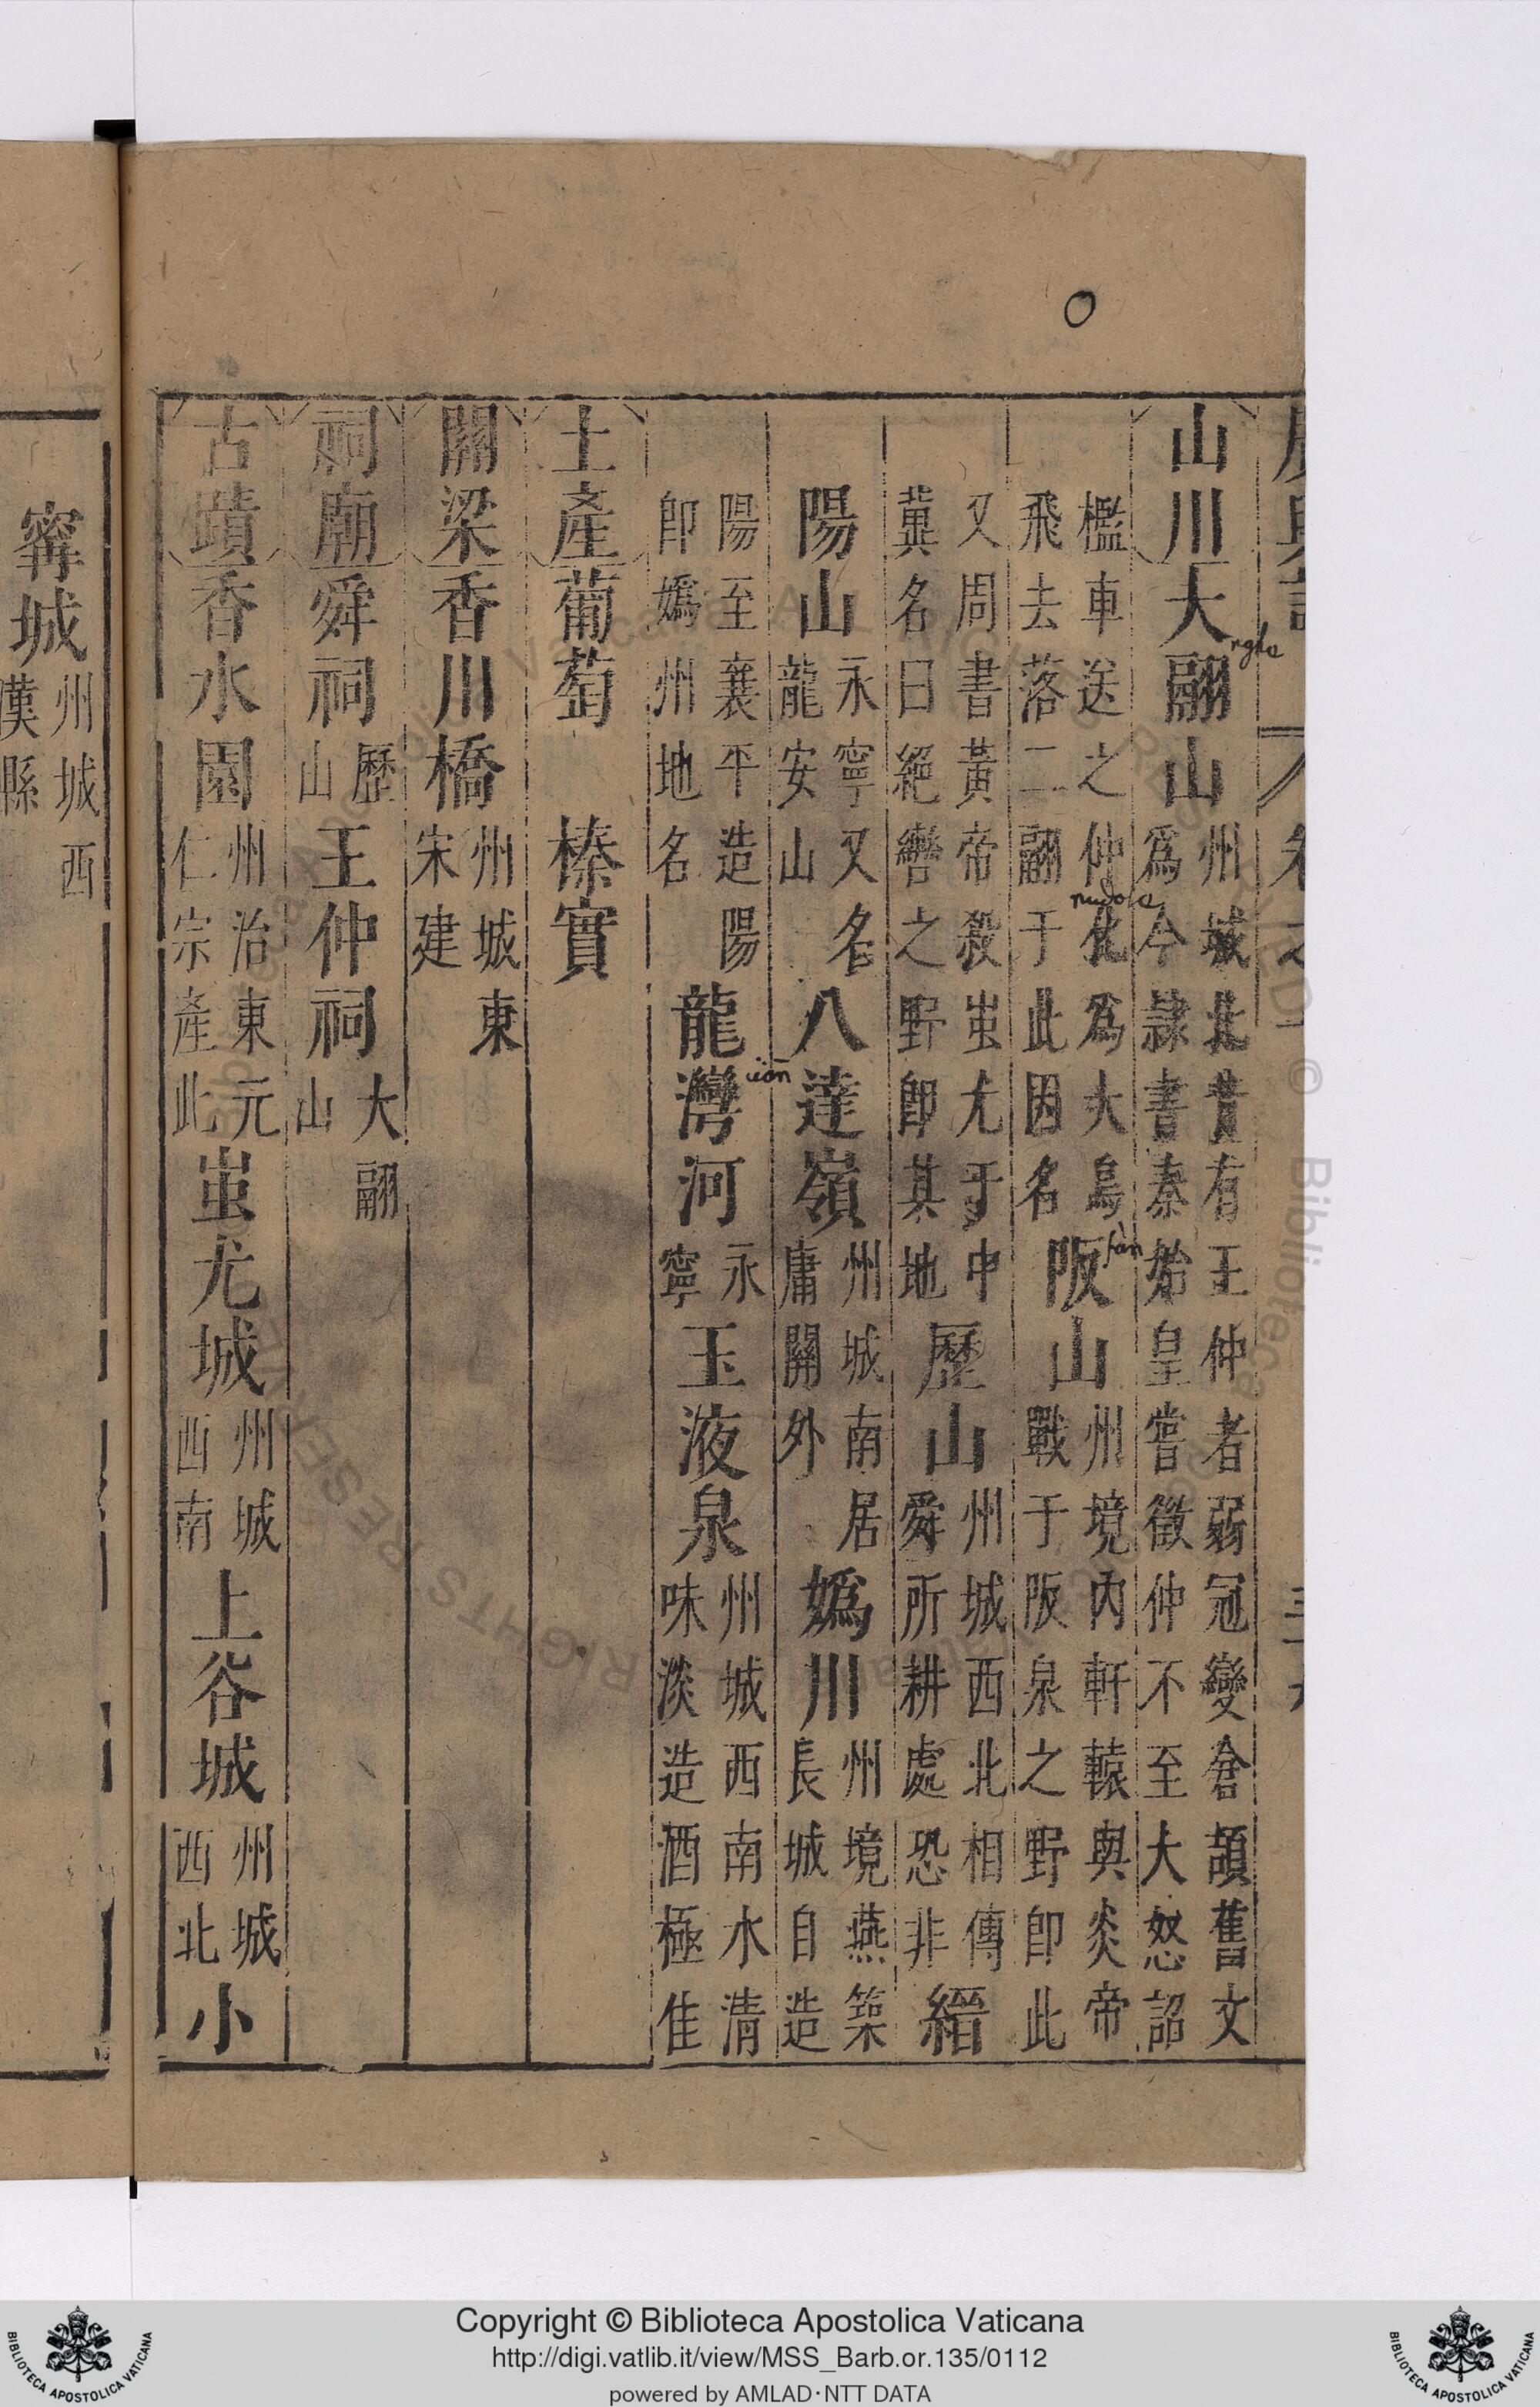 山川大翮山州城北昔有王仲者弱冠變倉頡舊文
爲今隷書秦始皇嘗徵仲不至大怒詔
檻車送之仲化爲大鳥
飛去落二翮于此因名阪山州境內軒轅與炎帝
戰于阪泉之野卽此
又周書黃帝殺蚩尤于中
冀名曰絕轡之野卽其地歷山州城西北相傳
舜所耕處恐非縉
陽山永寧又名
龍安山八達嶺州城南居
庸關外嬀川州境燕築
長城自造
陽至襄平造陽
卽嬀州地名龍灣河永
寧玉液泉州城西南水清
味淡造酒極佳
土產葡萄 榛實
關梁香川橋州城東
宋建
祠廟舜祠歷
山王仲祠大翮
山
古蹟香水園州治東元
仁宗產此蚩尤城州城
西南上谷城州城
西北小
寗城州城西
漢縣
O
ngho
mudole
fàn
iün
Copyright © Biblioteca Apostolica Vaticana
http://digi.vatlib.it/view/MSS_Barb.or.135/0112
powered by AMLAD·NTT DATA
BIBLIOTECA APOSTOLICA VATICANA
BIBLIOTECA APOSTOLICA VATICANA